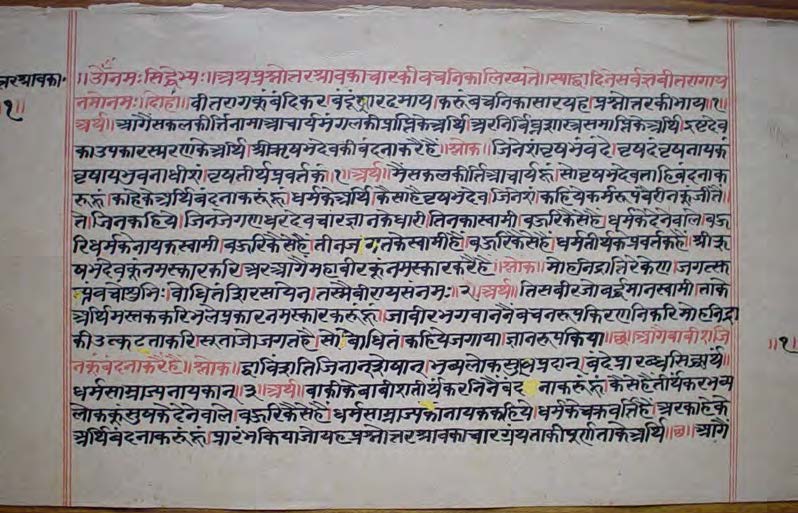 त्तरश्रावका॰
१॥
॥ॐनमःसिद्धेभ्यः॥अथप्रश्नोत्तरश्रावकाचारकीवचनिकालिख्यते॥स्याद्वादिनेसर्वज्ञवीतरागाय
नमोनमः॥दोहा॥वीतरागकूंबंदिकर।बंदूंसारदमाय।करूंबचनिकासारयह।प्रश्नोत्तरकीभाय।१।
अर्थ।आगैंसकलकीर्त्तिनामाआचार्यमंगलकीप्राप्तिकेअर्थि।अरनिर्विघ्नशास्त्रसमाप्तिकेअर्थि।इष्टदेव
काउपकारस्मरणकेअर्थि।श्रीऋषभदेवकीबंदनाकरैहैं॥श्लोक।जिनेशंवृषभंवंदे।वृषदंवृषनायकं
वृषायभुवनाधीशं।वृषतीर्थप्रवर्तकं।१।अर्थ।मैंसकलकीर्त्तिआचार्यहूं।सोवृषभदेवताहिबंदनाक
रूंहूं।काहेकेअर्थिबंदनाकरूंहूं।धर्मकेअर्थि।कैसाहैवृषभदेव।जिनेशं।कहियेकर्मरूपवैरीनकूंजीतैं।
तेजिनकहिये।जिनजेगणधरदेवचारज्ञानकेधारी।तिनकास्वामी।बहुरिकैसेहै।धर्मकेदेनेवाले।बहु
रिधर्मकेनायकस्वामी।बहुरिकैसेहैं।तीनजगतकेस्वामीहैं।बहुरिकैसेहैं।धर्मतीर्थकेप्रवर्तकहैं।श्रीऋ
षभदेवकूंनमस्कारकरि।अरआगैंमहावीरकूंनमस्कारकरैहैं।श्लोक।मोहनिद्रातिरेकेण।जगत्सु
प्तंवचोंशुभिः।बोधितंशिरसायेन।तस्मैवीरायसंनमः।२।अर्थ।तिसवीरजोवर्द्धमानस्वामी।ताके
अर्थिमस्तककरिभलेप्रकारनमस्कारकरूंहूं।जावीरभगवाननैंवचनरूपकिरणनिकरिमोहनिद्रा
कीउत्कटताकरिसूताजोजगतहै।सोबोधितंकहियेजगाया।ज्ञानरूपकिया॥छ॥आगेंबावीसजि
नकूंबंदनाकरैहैं॥श्लोक।द्वाविंशतिजिनानशेषान्।भव्यलोकसुखप्रदान्।वंदेप्रारब्धसिद्ध्यर्थं॥
धर्मसाम्राज्यनायकान्॥३॥अर्थ।बाकीकेबावीशतीर्थंकरतिनैंबंदनाकरूंहूं।कैसेहैंतीर्थंकरभव्य
लोककूंसुखकेदेनेवाले।बहुरिकैसेहैं।धर्मसाम्राज्यकानायककहिये।धर्मकेचक्रवर्तिहैं।अरकाहेके
अर्थिबंदनाकरूंहूं।प्रारंभकियाजोयहप्रश्नोत्तरश्रावकाचारग्रंथताकीपूर्णताकेअर्थि॥छ॥आगैं
॥१॥